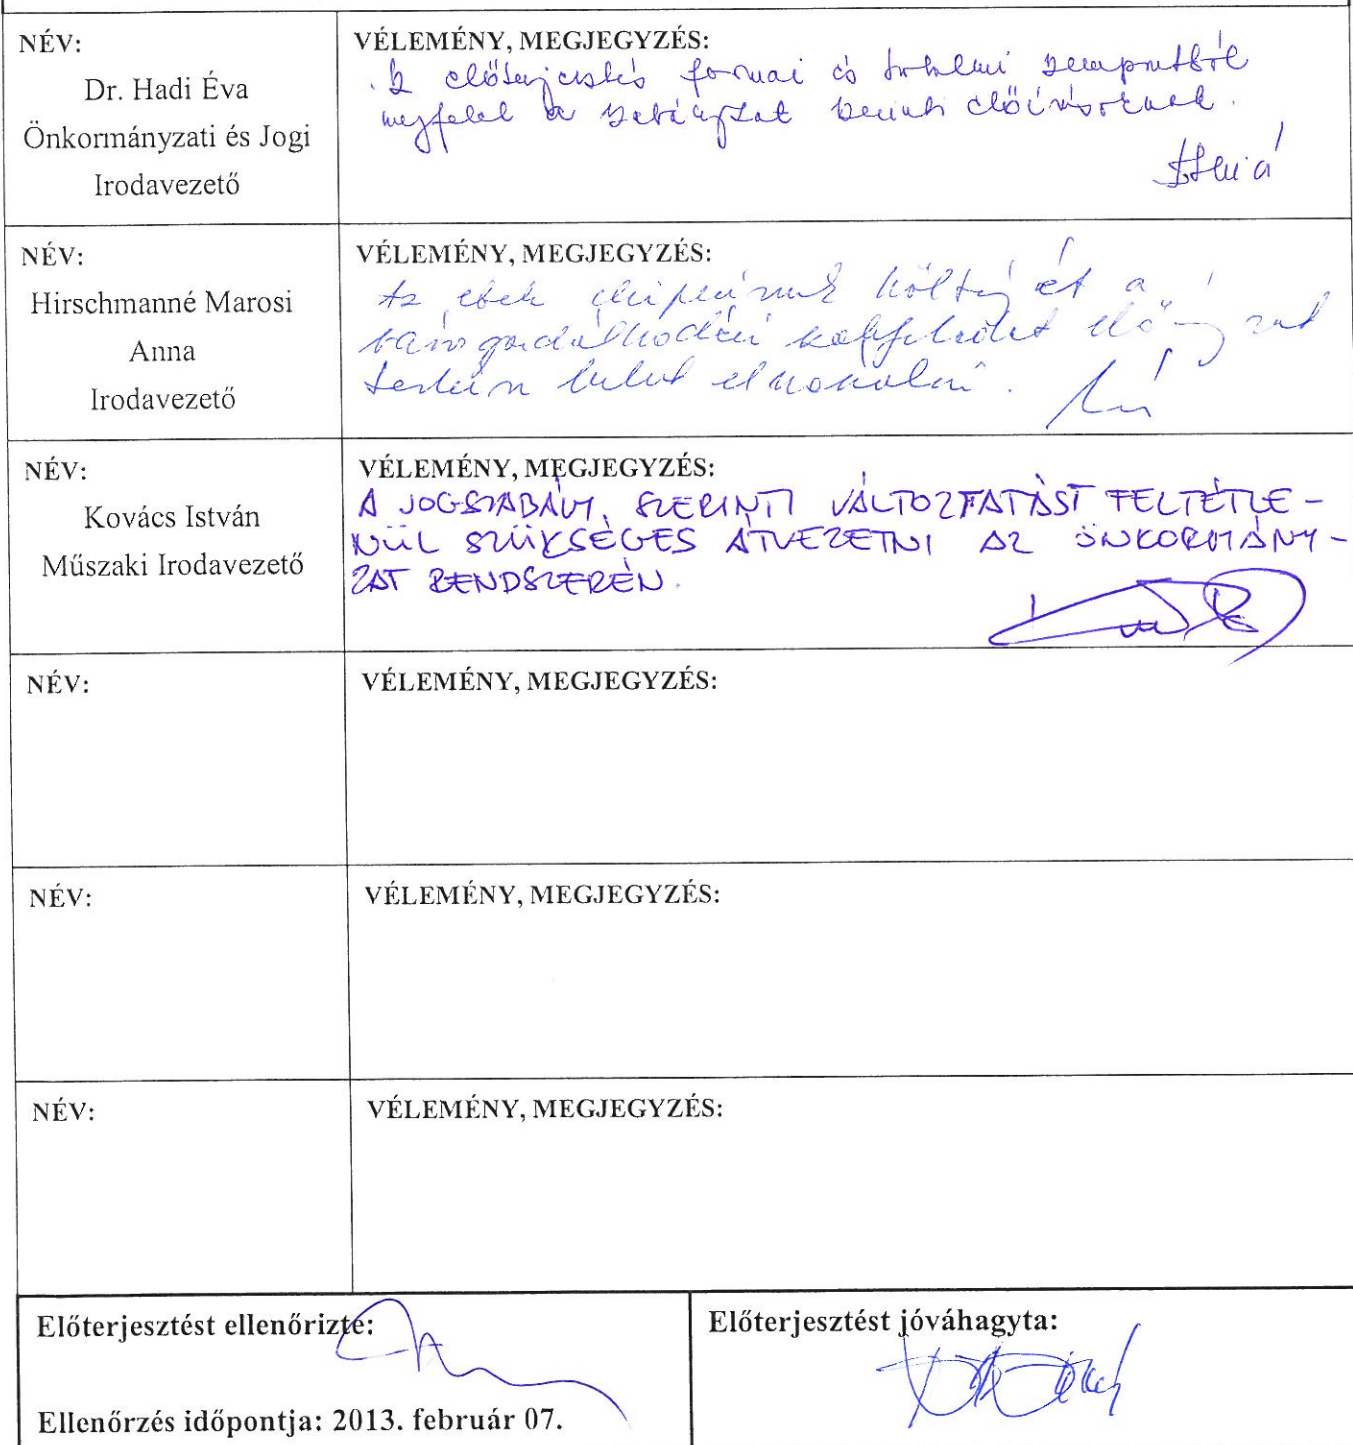 NÉV:
Dr. Hadi Éva
Önkormányzati és Jogi
Irodavezető
VÉLEMÉNY, MEGJEGYZÉS:
Az előterjesztés formai és tartalmi szempontból
megfelel a szerinti előírásoknak.
NÉV:
Hirschmanné Marosi
Anna
Irodavezető
VÉLEMÉNY, MEGJEGYZÉS:
Az ebek költségét a
NÉV:
Kovács István
Műszaki Irodavezető
VÉLEMÉNY, MEGJEGYZÉS:
A JOGSZABÁLY SZERINTI VÁLTOZTATÁST FELTÉTLE-
NÜL SZÜKSÉGES ÁTVEZETNI AZ ÖNKORMÁNY-
ZAT RENDSZERÉN.
NÉV:
VÉLEMÉNY, MEGJEGYZÉS:
NÉV:
VÉLEMÉNY, MEGJEGYZÉS:
NÉV:
VÉLEMÉNY, MEGJEGYZÉS:
Előterjesztést ellenőrizte:
Ellenőrzés időpontja: 2013. február 07.
Előterjesztést jóváhagyta: